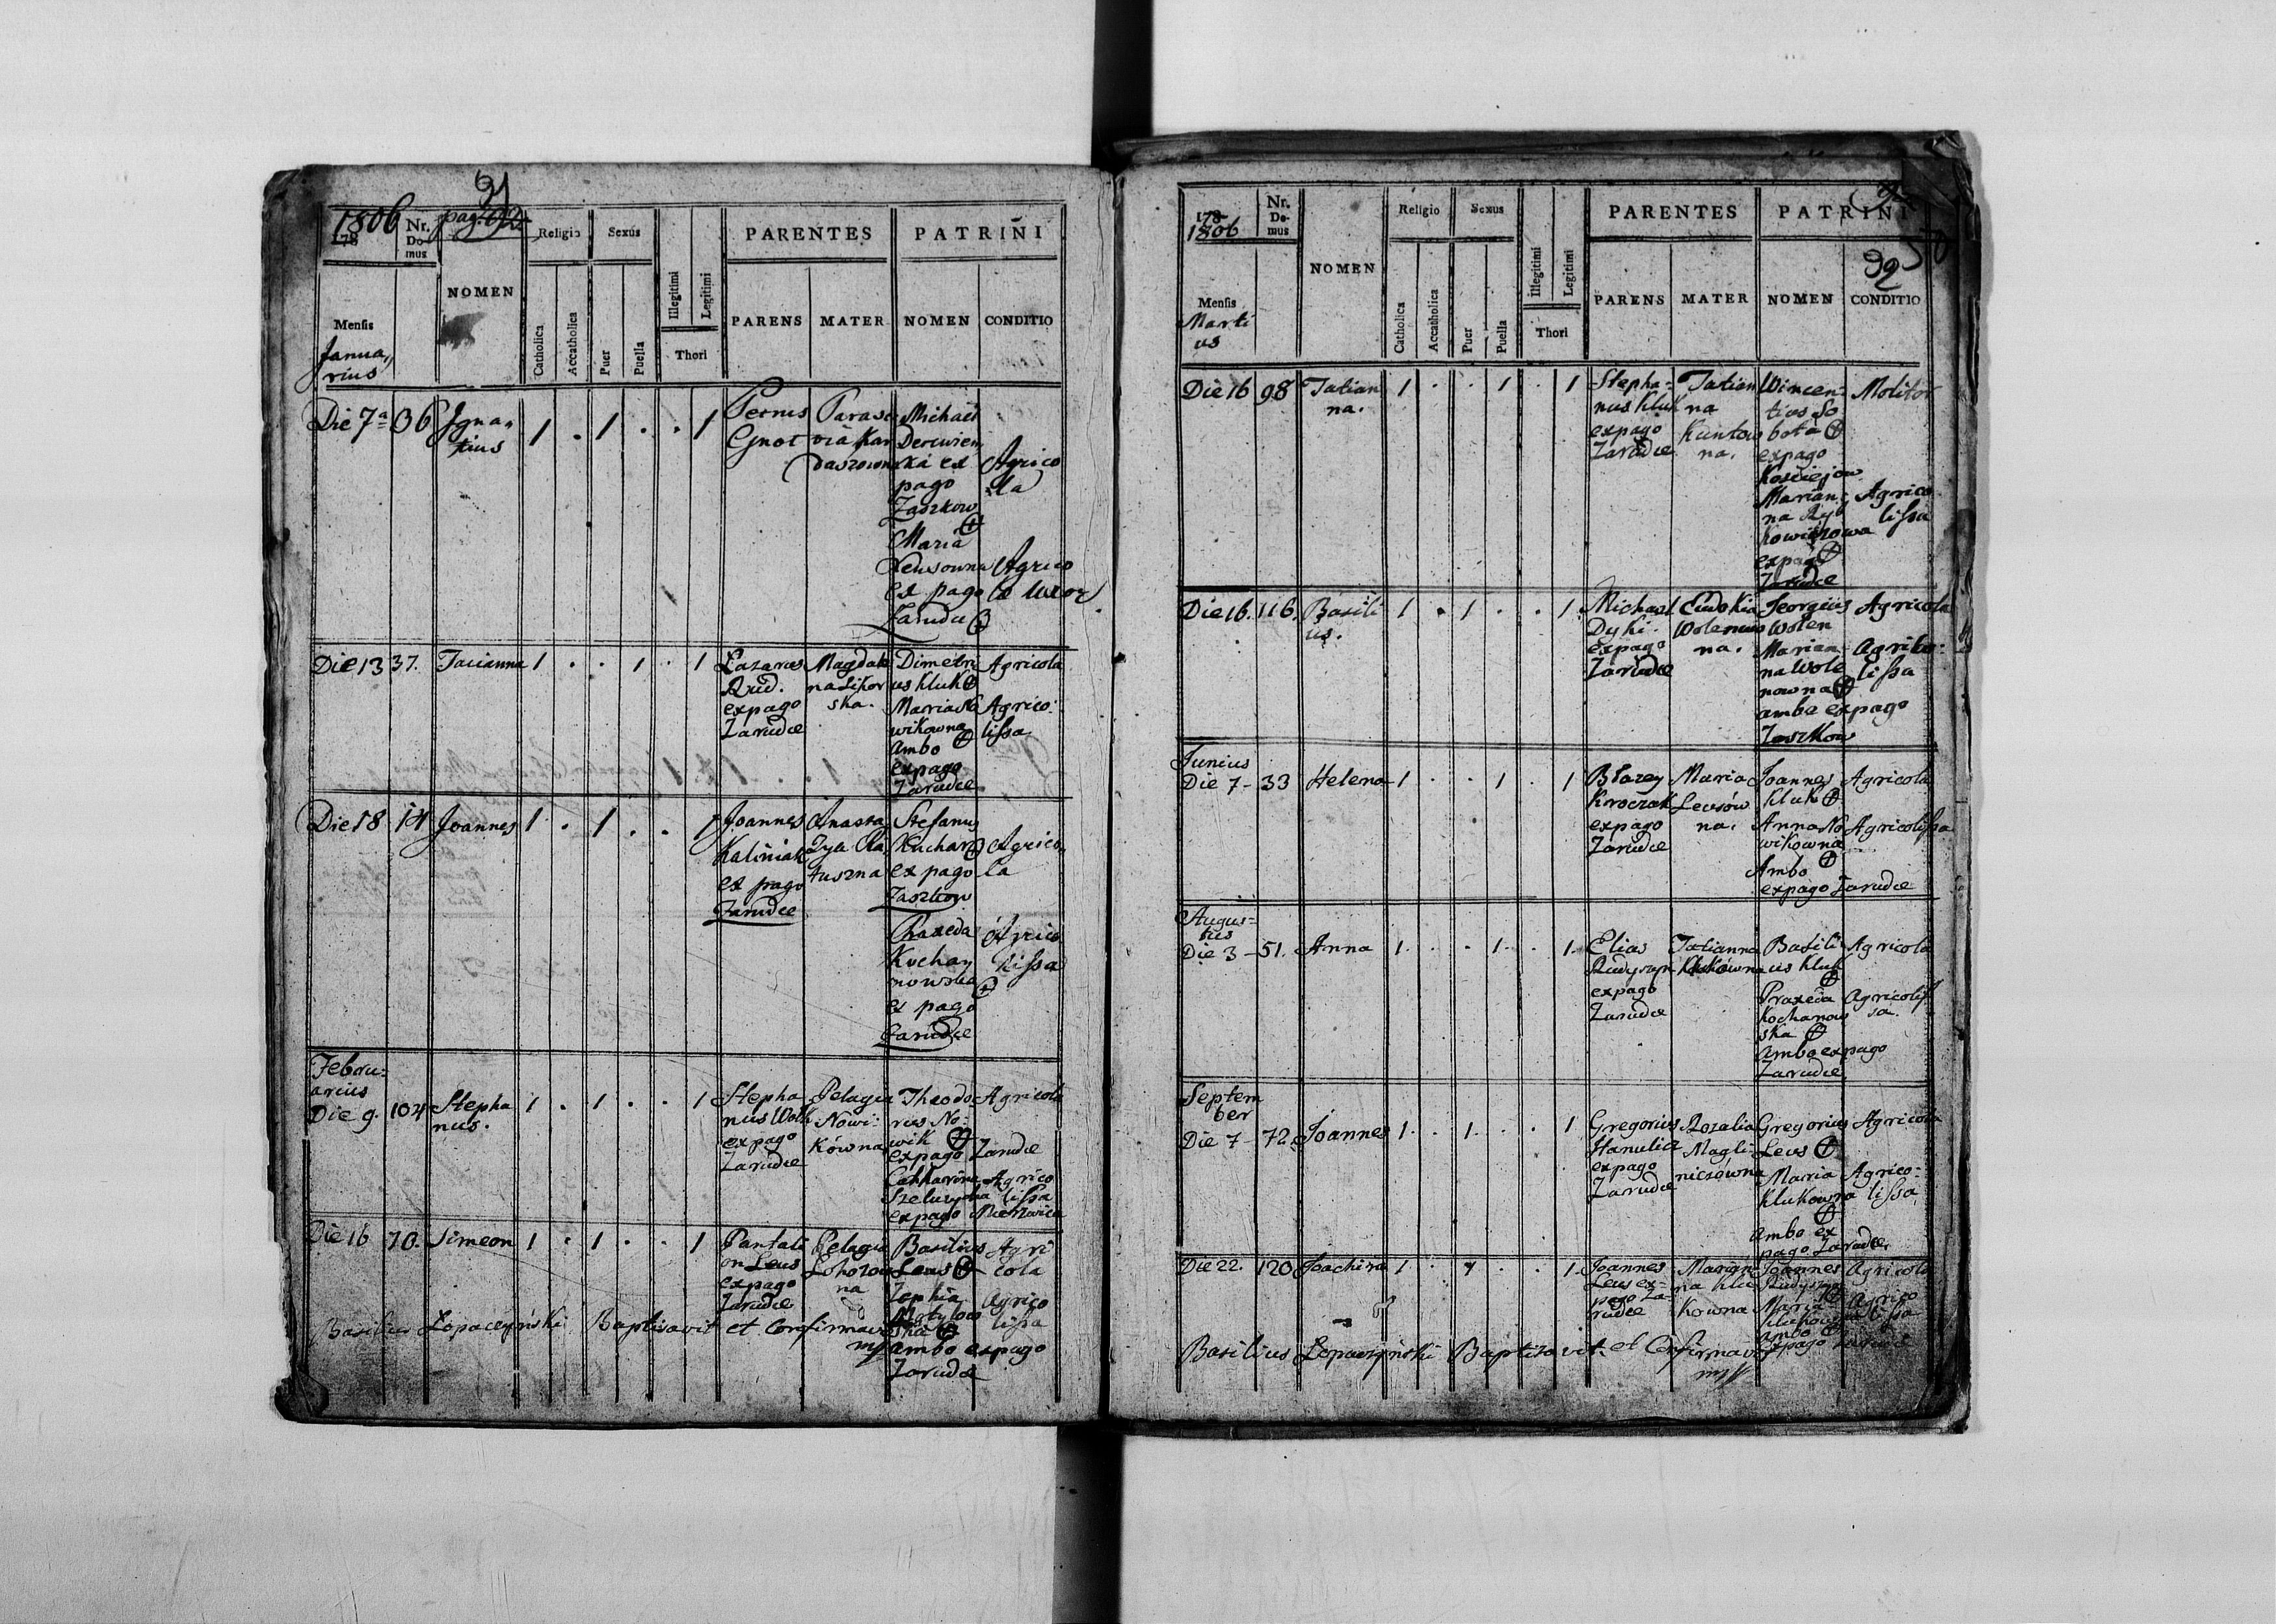 1806 pag. 91
178
Nr. Domus
NOMEN
Religio
Sexus
Catholica
Accatholica
Puer
Puella
Illegitimi
Legitimi
Thori
PARENTES
PATRINI
PARENS
MATER
NOMEN
CONDITIO
Mensis
Janua,,
rius
Die 7ª 36 Igna,,
tius
1 . 1 . . 1
Parasce
via Kan
daszown
Michaël
ex
pago
Zaszkow
Maria
Lewsowna
ex pago
Zarudce
Agrico
la
Agrico
la uxor
Die 13 37. Tacianna 1 . . 1 . 1
Lazarus
Rud.
ex pago
Zarudce
Magdale
na Sikor
ska.
Dimetri
us Kluk
Maria No
wikowna
ambo
ex pago
Zarudce
Agricola
Agrico:
lissa
Die 18 14 Joannes 1 . 1 . . 1
Joannes
Kaliniak
ex pago
Zarudce
Anasta
tuszna
Stefanus
Kuchar
ex pago
Zaszkow
Agrico,
la
Kochay
nowska
ex pago
Zarudce
Agrico
lissa
Febru=
arius
Die 9. 104 Stepha
nus.
1 . 1 . . 1
Stepha
nus
ex pago
Zarudce
Pelagia
Nowi:
kówna
Theodo
rus No:
wik
ex pago Zarudce
Catharina
ex pago
Agricola
Agrico
lissa
Die 16 70. Simeon 1 . 1 . . 1
Pantali
on Leus
ex pago
Zarudce
Pelagia
na
Basilius
Leus
Zophia
ska
ambo ex pago
Zarudce
Agri
cola
Agrico
lissa
Basilius Łopaczyński Baptisavit et Confirmavit
mp
178
1806
Nr. Domus
NOMEN
Religio
Sexus
Catholica
Accatholica
Puer
Puella
Illegitimi
Legitimi
Thori
PARENTES
PATRINI
92
50
PARENS
MATER
NOMEN
CONDITIO
Mensis
Marti
us
Die 16 98 Tatian
na.
1 . . 1 . 1
Stepha=
nus Kluk
ex pago
Zarudce
Tatian
na
Kuntow
na.
Wincen=
tius So
bota
ex pago
Kosciejow
Marian=
na Ry
kowiczowa
ex pago
Zarudce
Molitor
Agrico
lissa
Die 16. 116. Basili
us.
1 . 1 . . 1
Michael
Dyki.
ex pago
Zarudce
Eudokia
Wolenow
na.
Georgius
Wolen
Marian
na Wole
nowna
ambo ex pago
Zaszkow
Agricola
Agrico=
lissa
Junius
Die 7- 33 Helena 1 . . 1 . 1
Błazey
Kroczak
ex pago
Zarudce
Maria
Leusów
na.
Joannes
Kluk
Anna No
wikowna
Ambo
ex pago Zarudce
Agricola
Agricolissa
Augus=
tus
Die 3- 51. Anna 1 . . 1 . 1
Elias
ex pago
Zarudce
Tatianna
Klukówna
Basili
us Kluk
Praxeda
Kochanow
ska
ambo ex pago
Zarudce
Agricola
Agricolis
sa.
Septem
ber
Die 7- 72. Joannes 1 . 1 . . 1
Gregorius
Hanulicz
ex pago
Zarudce
Rozalia
Magli-
niczówna
Gregorius
Leus
Maria
Klukowna
ambo ex
pago Zarudce
Agricola
Agrico=
lissa
Die 22. 120 Joachim 1 . 1 . . 1
Joannes
Leus ex=
pago Za=
rudce
Marian=
na Klu
kowna
Joannes
Maria
Klukowna
ambo
ex pago
Agricola
Agrico
lissa
Basilius Łopaczyński Baptisavit et Confirmavit
mp